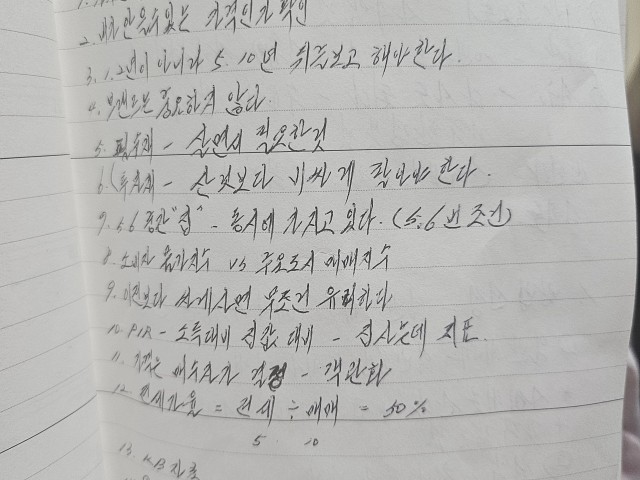 2. 내가 안 을수있는 가격인가 확인
3. 1.2년이 아니라 5. 10년 뒤를보고 해야한다.
4. 브랜드는 중요하지 않다.
5. 필수재 - 살면서 필요한것
6. (투자재 - 산것보다 비싸게 팔아야 한다.
7. 5.6 중간 "집" - 동시에 가지고 있다. (5.6번 조건)
8. 소비자 물가지수 vs 주요도시 매매지수
9. 이전보다 싸게사면 무조건 유리하다
10. PIR - 소득대비 집값 대비 - 집사는데 지표.
11. 가격은 매수자가 결정 - 객관화
12. 전세가율 = 전세 ÷ 매매 = 50%
5 10
13. KB